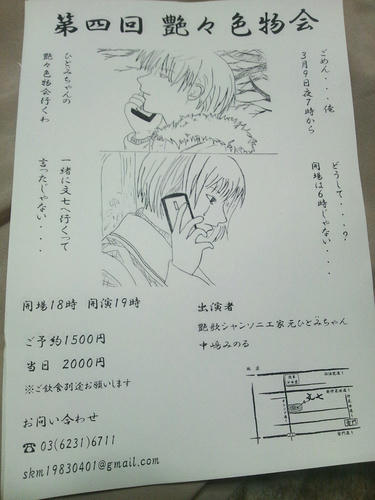 第四回 艶々色物会
ごめん・・・俺
3月9日夜7時から
ひとみちゃんの
艶々色物会行くわ
どうして・・・・?
開場は6時じゃない・・・
一緒に文七へ行くって
言ったじゃない・・・
開場18時 開演19時
ご予約1500円
当日 2000円
※ご飲食別途お願いします
お問い合わせ
☎03(6231)6711
skm19830401@gmail.com
出演者
艶歌シャンソニエ家元ひとみちゃん
中嶋みのる
文七